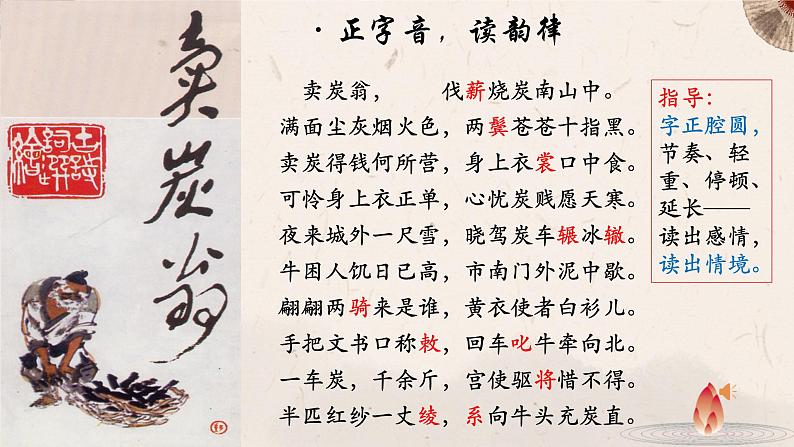 卖炭翁
古诗词选绘
·正字音,读韵律
卖炭翁, 伐薪烧炭南山中。
满面尘灰烟火色,两鬓苍苍十指黑。
卖炭得钱何所营,身上衣裳口中食。
可怜身上衣正单,心忧炭贱愿天寒。
夜来城外一尺雪,晓驾炭车辗冰辙。
牛困人饥日已高,市南门外泥中歇。
翩翩两骑来是谁,黄衣使者白衫儿。
手把文书口称敕,回车叱牛牵向北。
一车炭,千余斤,宫使驱将惜不得。
半匹红纱一丈绫,系向牛头充炭直。
指导:
字正腔圆,
节奏、轻
重、停顿、
延长——
读出感情,
读出情境。